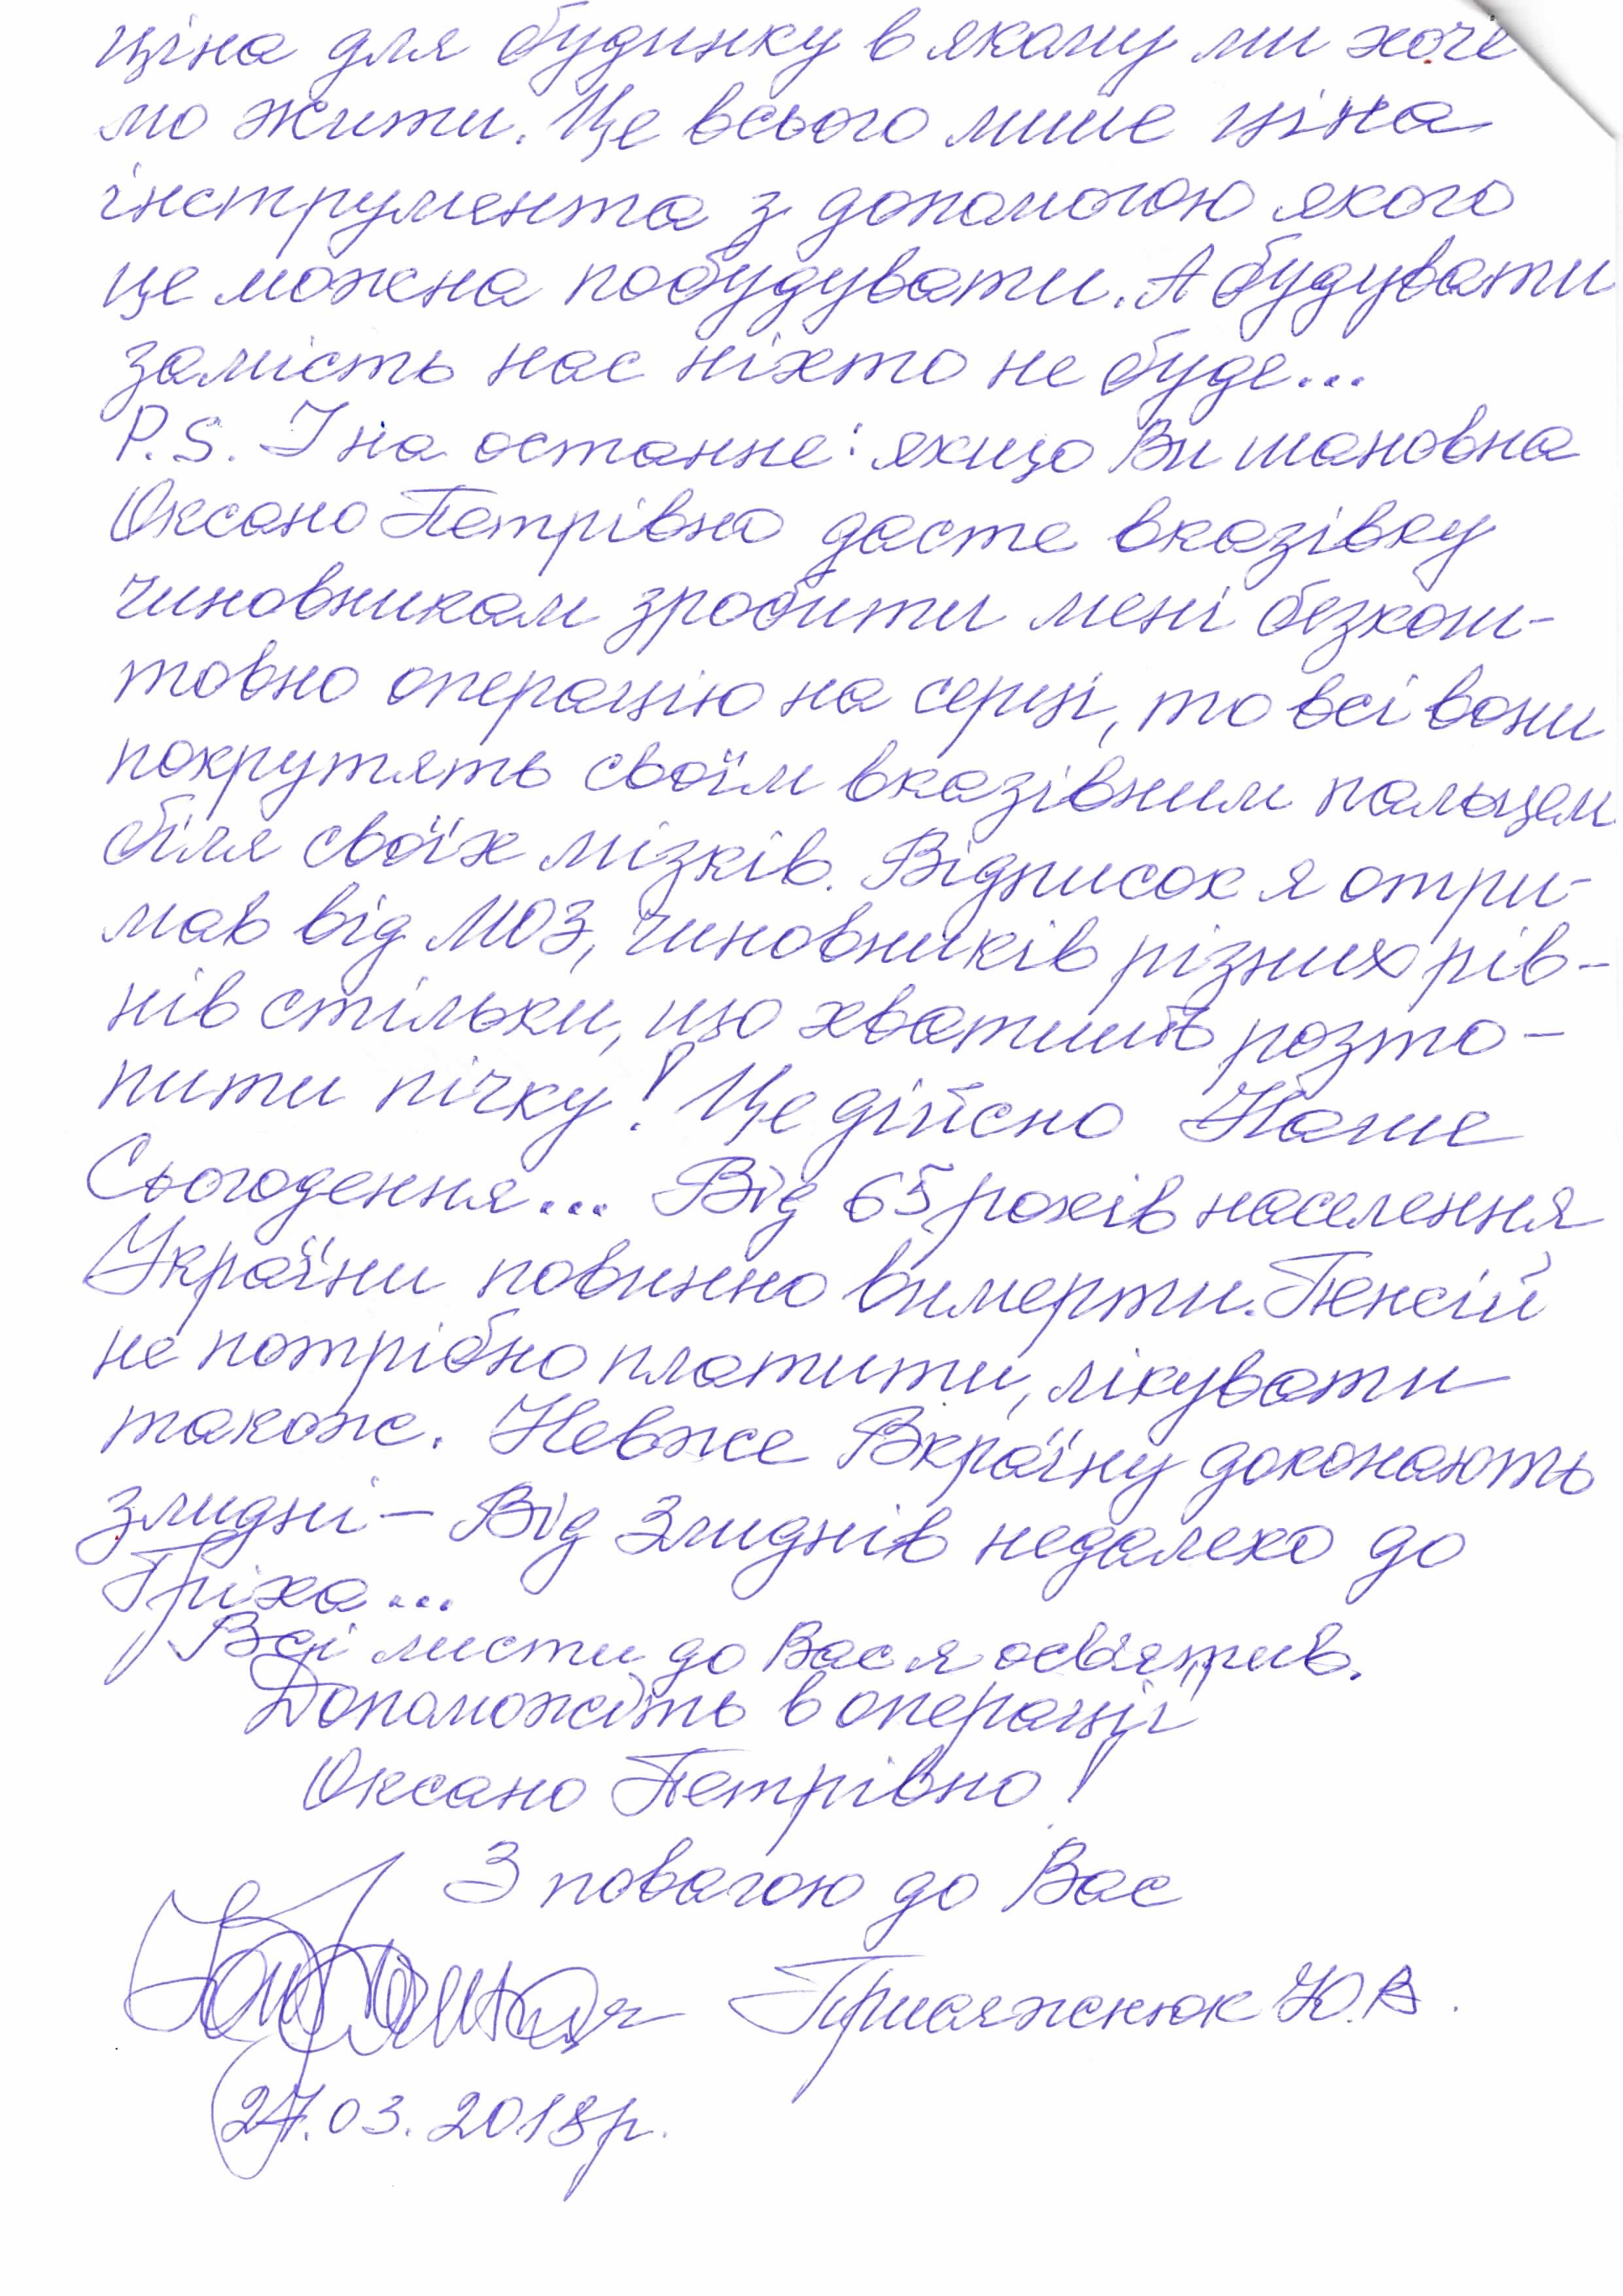 ціна для будинку в якому ми хоче
мо жити. Це всього лише ціна
інструмента з допомогою якого
це можна побудувати. А будувати
замість нас ніхто не буде...
P.S. І на останнє: якщо Ви шановна
Оксано Петрівно дасте вказівку
чиновникам зробити мені безкош-
товно операцію на серці, то всі вони
покрутять своїм вказівним пальцем
біля своїх мізків. Відписок я отри-
мав від МОЗ, чиновників різних рів-
нів стільки, що хватить розто-
пити пічку! Це дійсно Наше
Сьогодення... Від 65 років населення
України повинно вимерти. Пенсій
не потрібно платити, лікувати
також. Невже Вкраїну доконають
злидні – Від Злиднів недалеко до
Гріха...
Всі листи до Вас я освятив.
Допоможіть в операції
Оксано Петрівно!
З повагою до Вас
Присяжнюк Ю.В.
27.03.2018р.